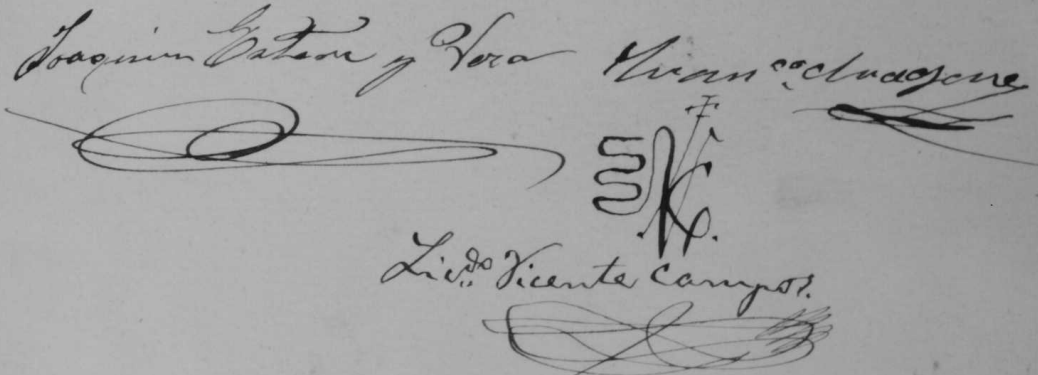 Joaquin Esteve y Vera Franco. Aragones
Licdo. Vicente Campos.